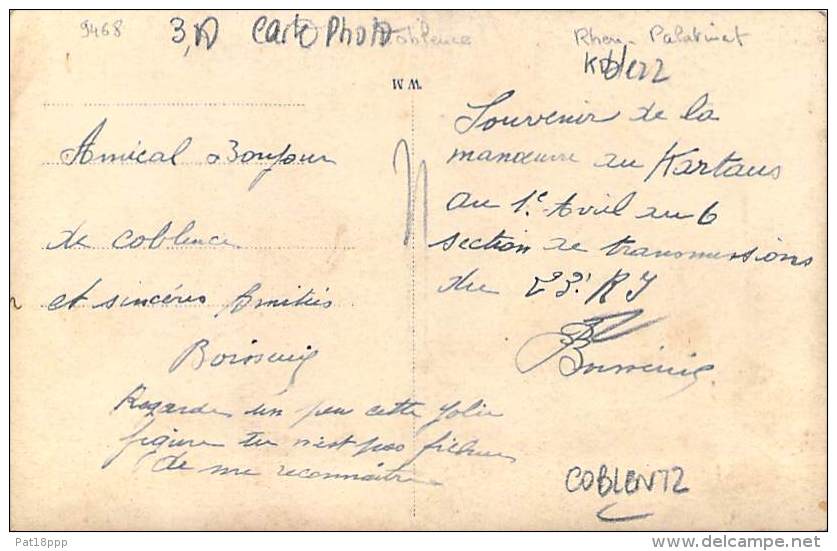 9468
3,50 Carte Photo Coblence
Rhen-Palatinat
Koblenz
W M
Amical Bonjour
de Coblence
et sincères Amitiés
Regarde un peu cette jolie
figure tu n'est pas fichue
de me reconnaitre
Souvenir de la
manœuvre au Kartaus
au 1e Avril au 6
section de transmissions
du 23e. R I
COBLENTZ
Pat18ppp
www.delcampe.net